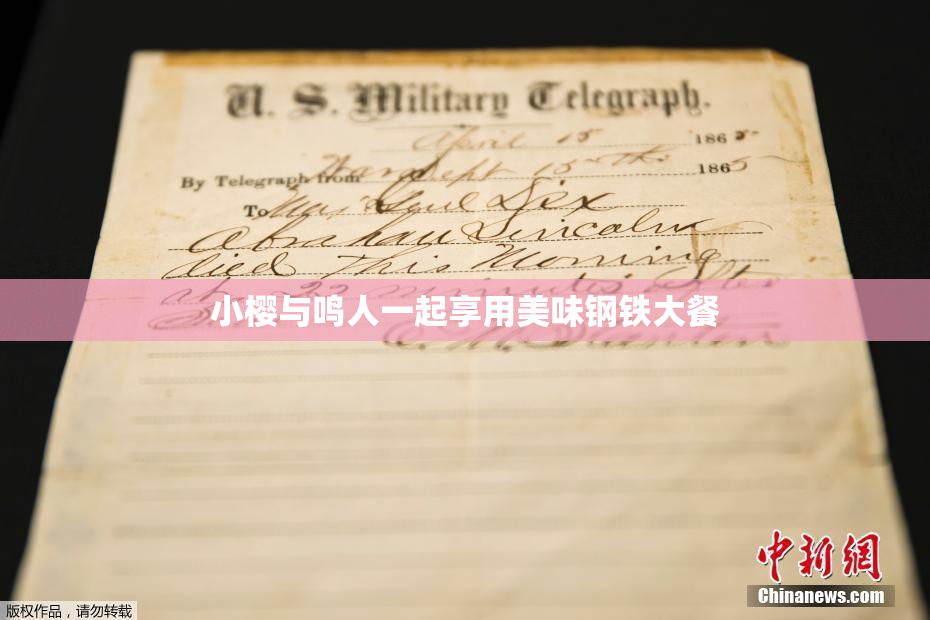 U. S. Military Telegraph.
April 15 1865
By Telegraph from War Dept 15th 1865
To Maj Genl Dix
Abraham Lincoln
died This Morning
at 22 minutes after
小樱与鸣人一起享用美味钢铁大餐
中新网
Chinanews.com
版权作品，请勿转载